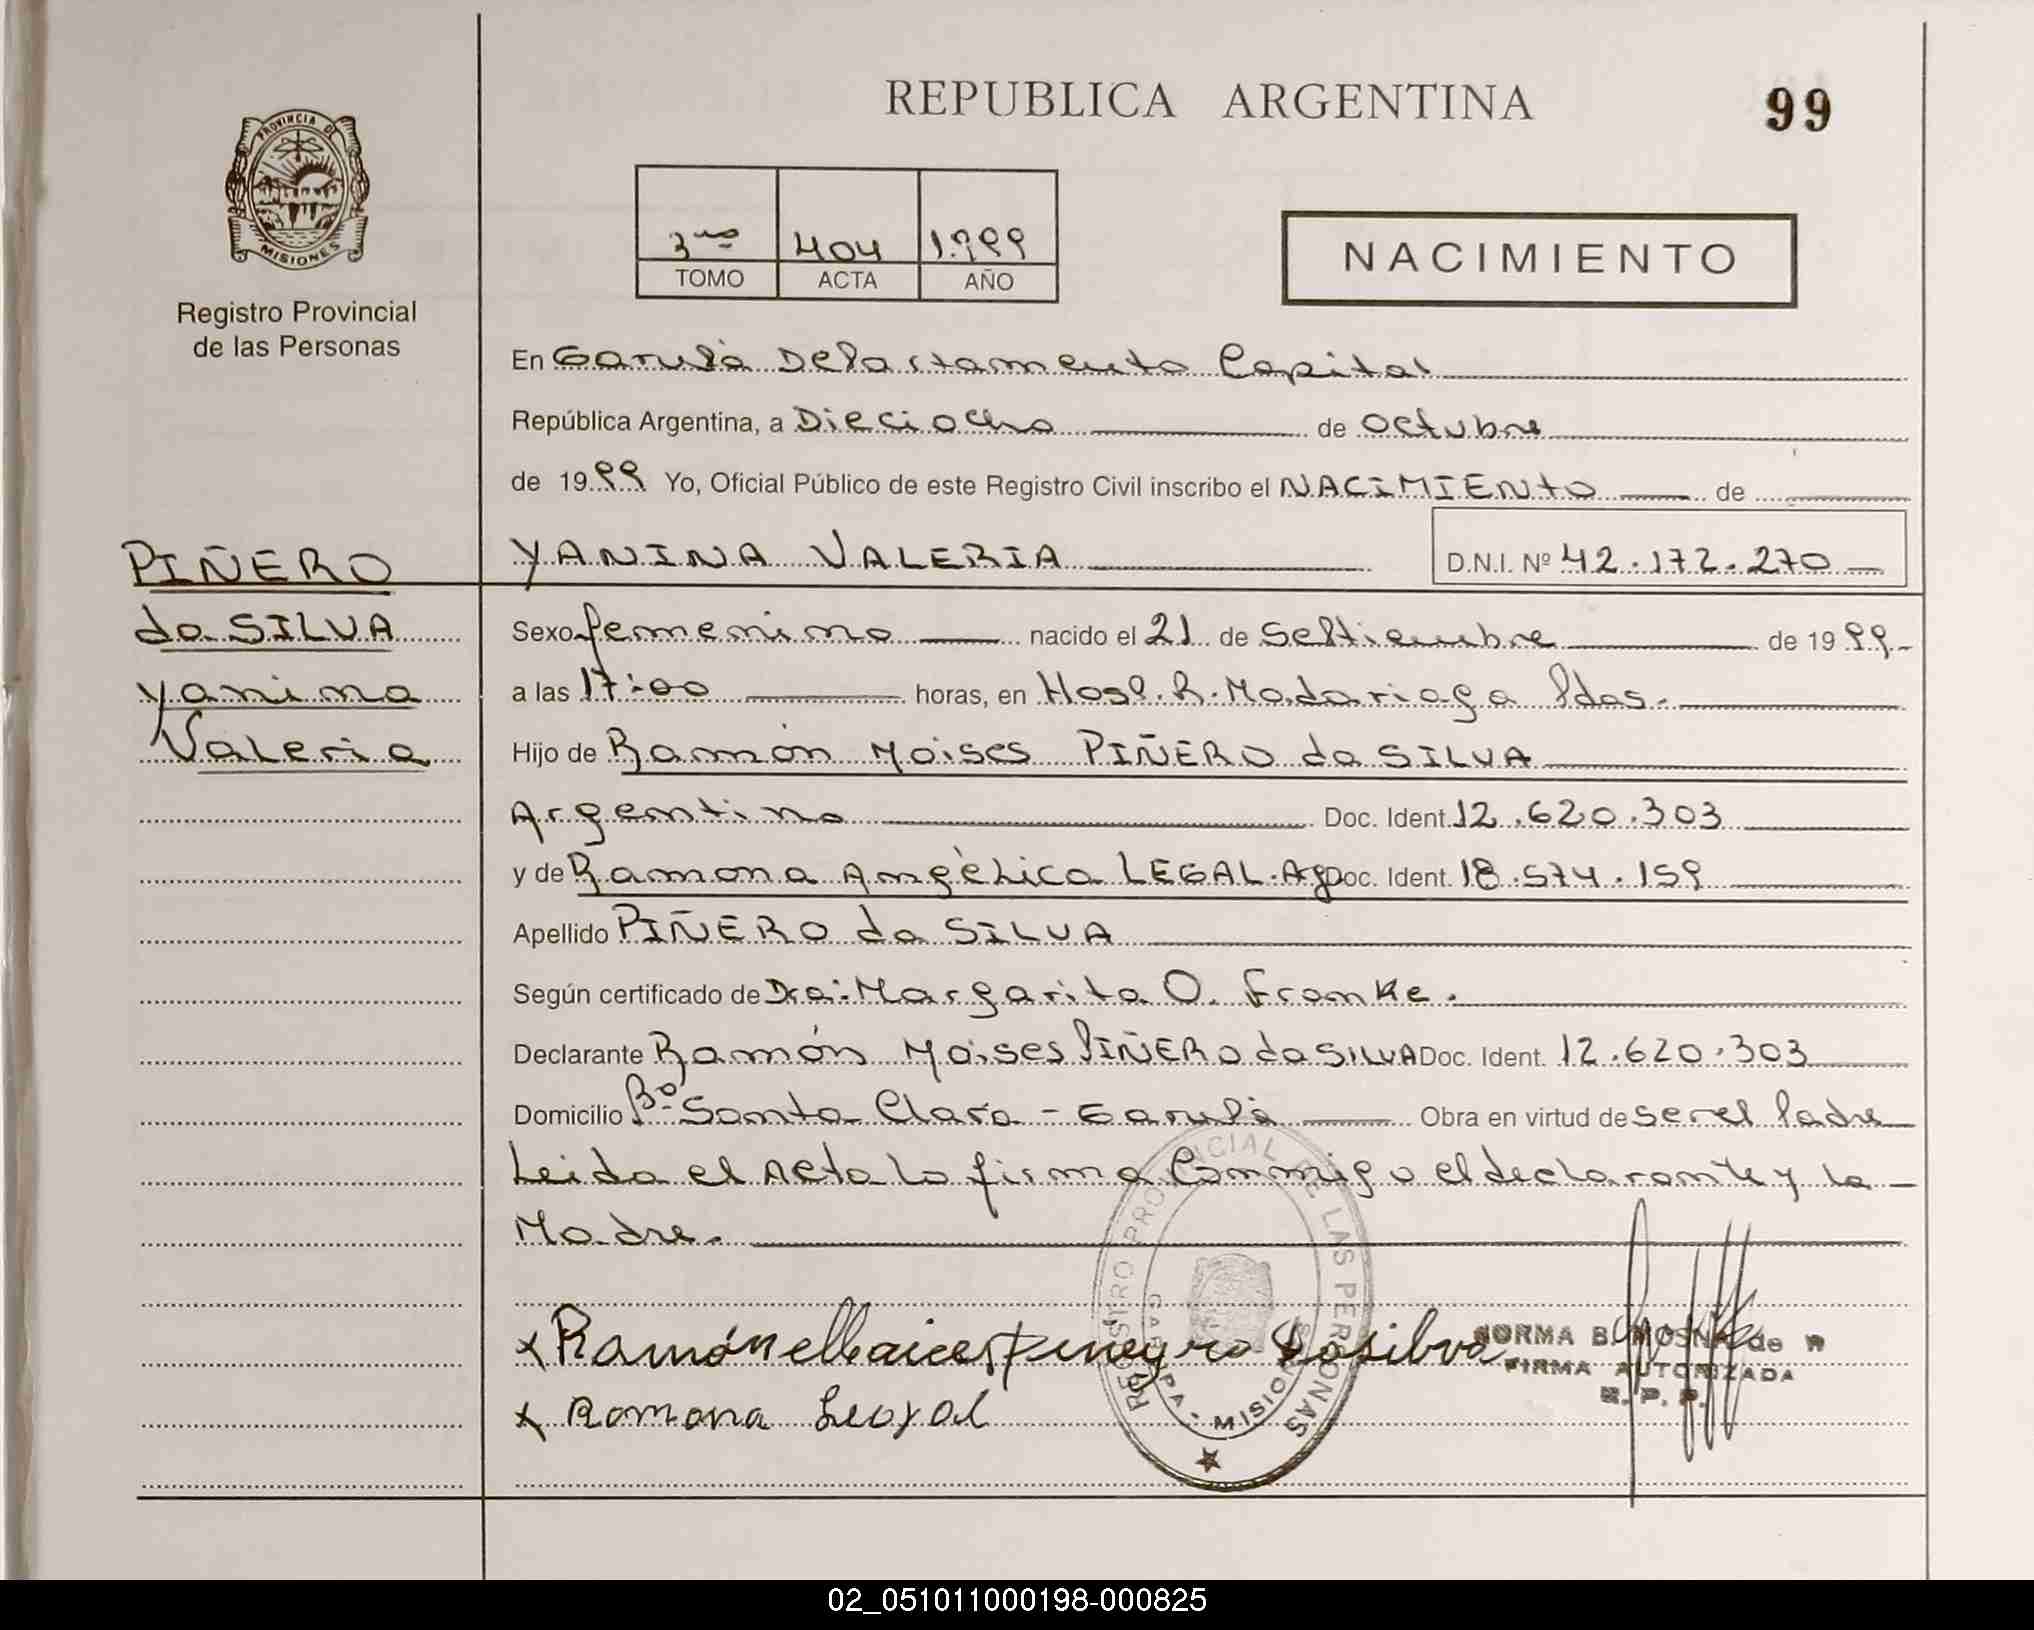 REPUBLICA ARGENTINA
99
PROVINCIA DE
MISIONES
Registro Provincial
de las Personas
3ro 404 1.999
TOMO ACTA AÑO
NACIMIENTO
En Garupá Departamento Capital
República Argentina, a Dieciocho de octubre
de 1999 Yo, Oficial Público de este Registro Civil inscribo el NACIMIENto de
YANINA VALERIA D.N.I. Nº 42.172.270
PIÑERO
da SILVA
Yanina
Valeria
Sexo femenino nacido el 21 de Septiembre de 1999
a las 17:00 horas, en Hosp. R. Madariaga Pdas.
Hijo de Ramón Moises PIÑERO da SILVA
Argentino Doc. Ident. 12.620.303
y de Ramona Angélica LEGAL. Arg Doc. Ident. 18.574.159
Apellido PIÑERO da SILVA
Según certificado de Dra: Margarita O. Franke.
Declarante Ramón Moises PIÑERO da SILVA Doc. Ident. 12.620.303
Domicilio Bº Santa Clara - Garupá Obra en virtud de ser el Padre
Leida el Acta la firma Conmigo el declarante y la
Madre.
REGISTRO PROVINCIAL DE LAS PERSONAS
GARUPA - MISIONES
x Ramón Da silva
x Ramona Legal
NORMA B. MOSNA de R
FIRMA AUTORIZADA
R. P. P.
02_051011000198-000825